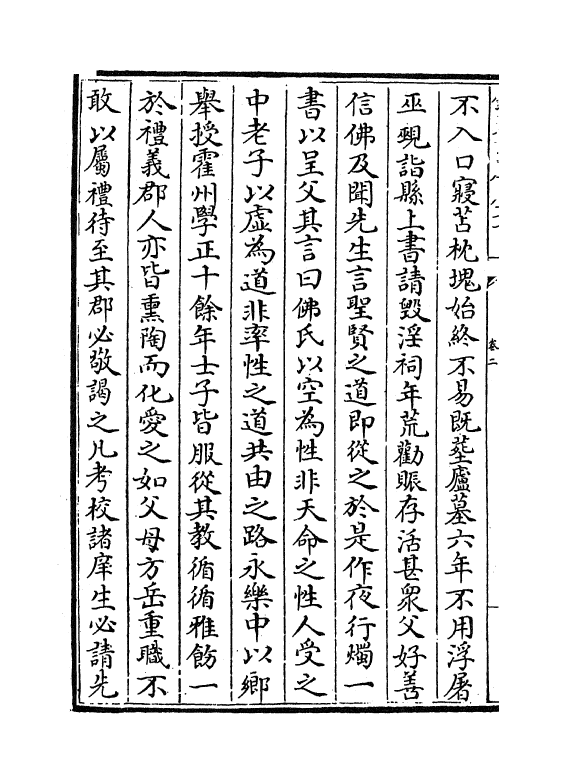 不入口寢苫枕塊始終不易既塟廬墓六年不用浮屠
巫覡詣縣上書請毁淫祠年荒勸賑存活甚衆父好善
信佛及聞先生言聖賢之道即從之於是作夜行燭一
書以呈父其言曰佛氏以空為性非天命之性人受之
中老子以虛為道非率性之道共由之路永樂中以鄉
舉授霍州學正十餘年士子皆服從其教循循雅飭一
於禮義郡人亦皆熏陶而化愛之如父母方岳重職不
敢以屬禮待至其郡必敬謁之凡考校諸庠生必請先
卷二